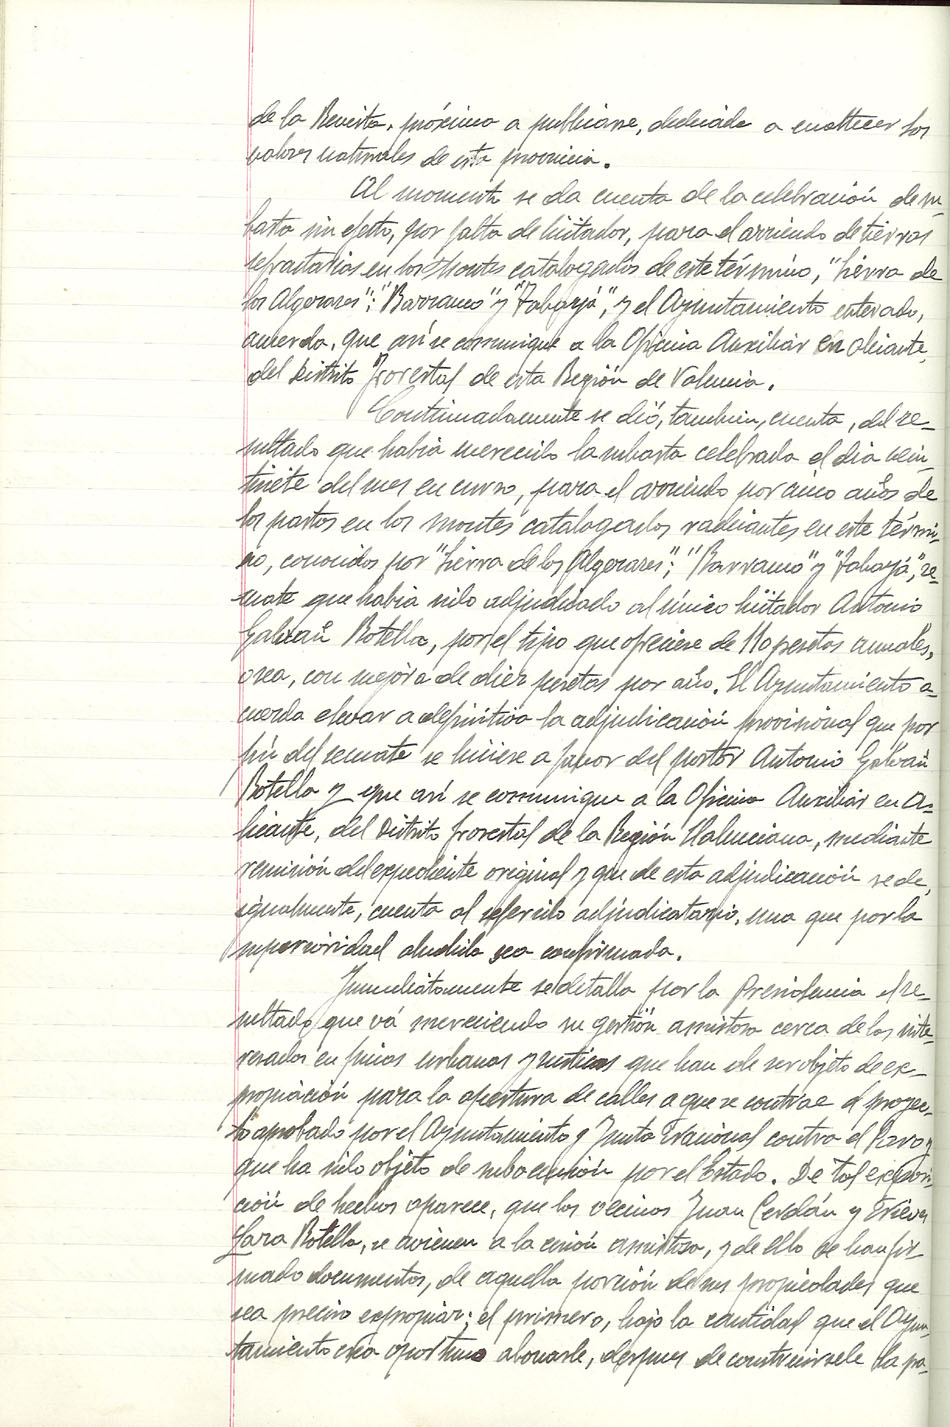 de la Revista, próximo a publicarse, dedicada a enaltecer los
valores naturales de esta provincia.
Al momento se da cuenta de la celebración de su-
basta sin efecto, por falta de licitador, para el arriendo de tierras
refractarias en los Montes catalogados de este término, "Sierra de
los Algezares"; "Barranco" y "Tabayá", y el Ayuntamiento enterado,
acuerda, que así se comunique a la Oficina Auxiliar en Alicante,
del Distrito Forestal de esta Región de Valencia.
Continuadamente se dió, tambien, cuenta, del re-
sultado que había merecido la subasta celebrada el día vein-
tisiete del mes en curso, para el arriendo por cinco años de
los pastos en los montes catalogados radicantes en este térmi-
no, conocidos por "Sierra de los Algezares"; "Barranco" y "Tabayá", re-
mate que había sido adjudicado al único licitador Antonio
Galvañ Botella, por el tipo que ofreciese de 110 pesetas anuales,
o sea, con mejora de diez pesetas por año. El Ayuntamiento a-
cuerda elevar a definitiva la adjudicación provisional que por
fin del remate se hiciese a favor del postor Antonio Galvañ
Botella y que así se comunique a la Oficina Auxiliar en A-
licante, del Distrito forestal de la Región Valenciana, mediante
remisión del expediente original y que de esta adjudicación se de,
igualmente, cuenta al referido adjudicatario, una que por la
superioridad aludida sea confirmada.
Inmediatamente se detalla por la Presidencia el re-
sultado que vá mereciendo su gestión amistosa cerca de los inte-
resados en fincas urbanas y rusticas que han de ser objeto de ex-
propiación para la apertura de calles a que se contrae el proyec-
to aprobado por el Ayuntamiento y Junta Nacional contra el Paro y
que ha sido objeto de subvención por el Estado. De tal exposi-
ción de hechos aparece, que los vecinos Juan Cerdán y
Lara Botella, se avienen a la cesión amistosa, y de ello se han fir
mado documentos, de aquella porción de sus propiedades que
sea preciso expropiar; el primero, bajo la cantidad que el Ayun-
tamiento crea oportuno abonarle, despues de construirsele la pa-